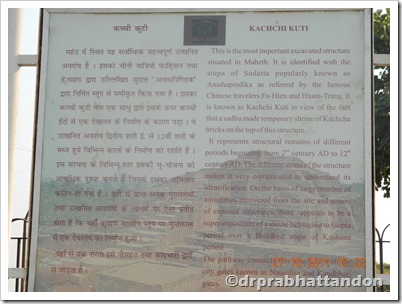 कच्ची कुटी
महेठ में स्थित यह सर्वाधिक महत्वपूर्ण उत्खनित
अवशेष है। इसका चीनी यात्रियों फाहियान तथा
ह्वेनसांग द्वारा उल्लिखित सुदत्त अनाथपिण्डिक
द्वारा निर्मित स्तूप से समीकृत किया गया है। इसका
कच्ची कुटी नाम एक साधु द्वारा इसके ऊपर कच्ची
ईंटों से एक देवालय के निर्माण के कारण पड़ा। ये
उत्खनित अवशेष द्वितीय शती ई. से 12वीं शती के
मध्य हुये विभिन्न कालों के निर्माण को दर्शाते हैं।
इस संरचना के विभिन्न स्तर इसकी भू-योजना को
KACHCHI KUTI
This is the most important excavated structure
situated in Maheth. It is identified with the
stupa of Sudatta popularly known as
Anathapindika as referred by the famous
Chinese travelers Fa-Hien and Hiuen-Tsang. It
is known as Kachchi Kuti in view of the fact
that a sadhu made temporary shrine of Kachcha
bricks on the top of this structure.
It represents structural remains of different
periods beginning from 2nd century AD to 12th
century AD. The different strata of the structure
makes it very complicated to understand its
identification. On the basis of large number of
antiquities recovered from the site and nature
of exposed structures, there appears to be a
superimposition of a shrine belonging to Gupta
period over a Buddhist stupa of Kushana
period.
The pathway connects
city gates known as Nausahra and Kandbhari
gates.
©drprabhattandon